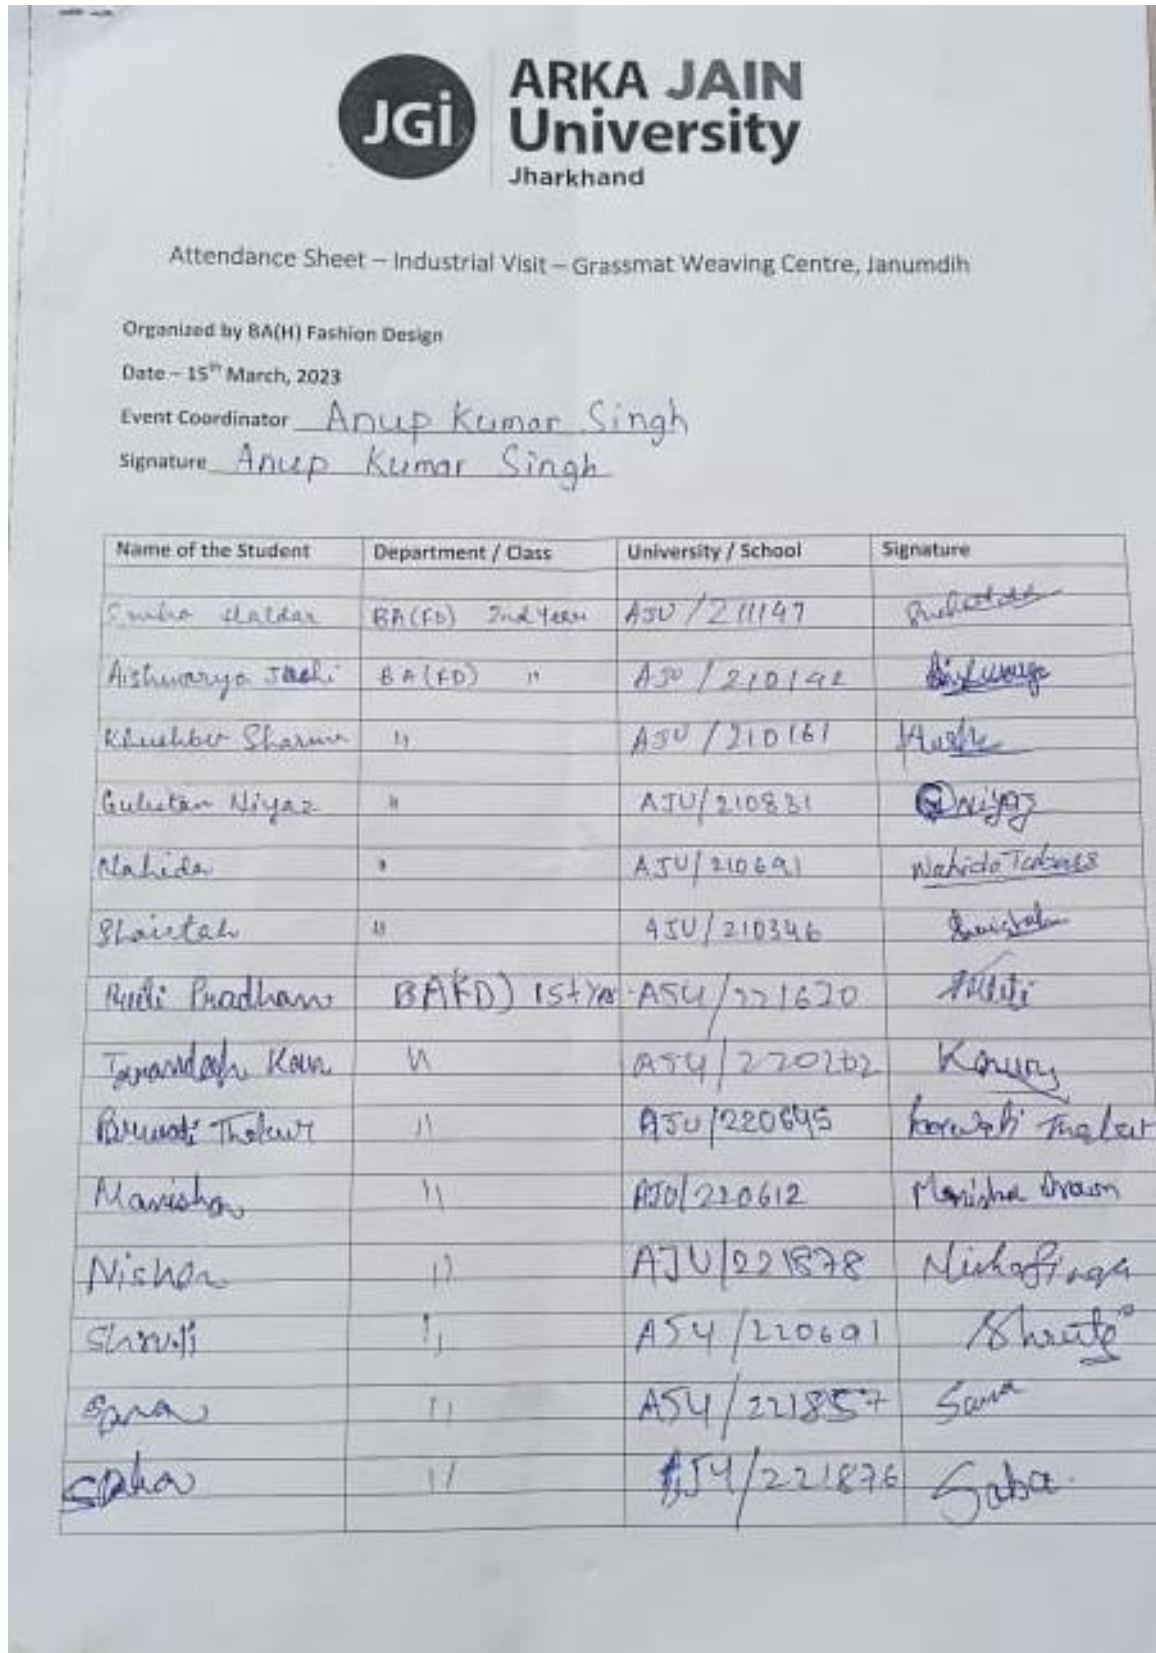 JGi
ARKA JAIN
University
Jharkhand
Attendance Sheet – Industrial Visit – Grassmat Weaving Centre, Janumdih
Organized by BA(H) Fashion Design
Date – 15th March, 2023
Event Coordinator Anup Kumar Singh
Signature Anup Kumar Singh
Name of the Student Department / Class University / School Signature
Haldar BA(FD) 2nd Year AJU/211147
Aishwarya Joshi BA(FD) " AJU/210142 Aishwarya
Khushbu Sharma " AJU/210161
Gulistan Niyaz " AJU/210831 Niyaz
Nahida " AJU/210691 Nahida
Shaistah " AJU/210346 Shaistah
Pradhan BA(FD) 1st Year AJU/221620
Kaur " AJU/220202
Thakur " AJU/220645 Thakur
Manisha " AJU/220612 Manisha
Nisha " AJU/221878 Nisha Singh
Shruti " AJU/220691 Shruti
Sana " AJU/221857 Sana
Saba " AJU/221876 Saba